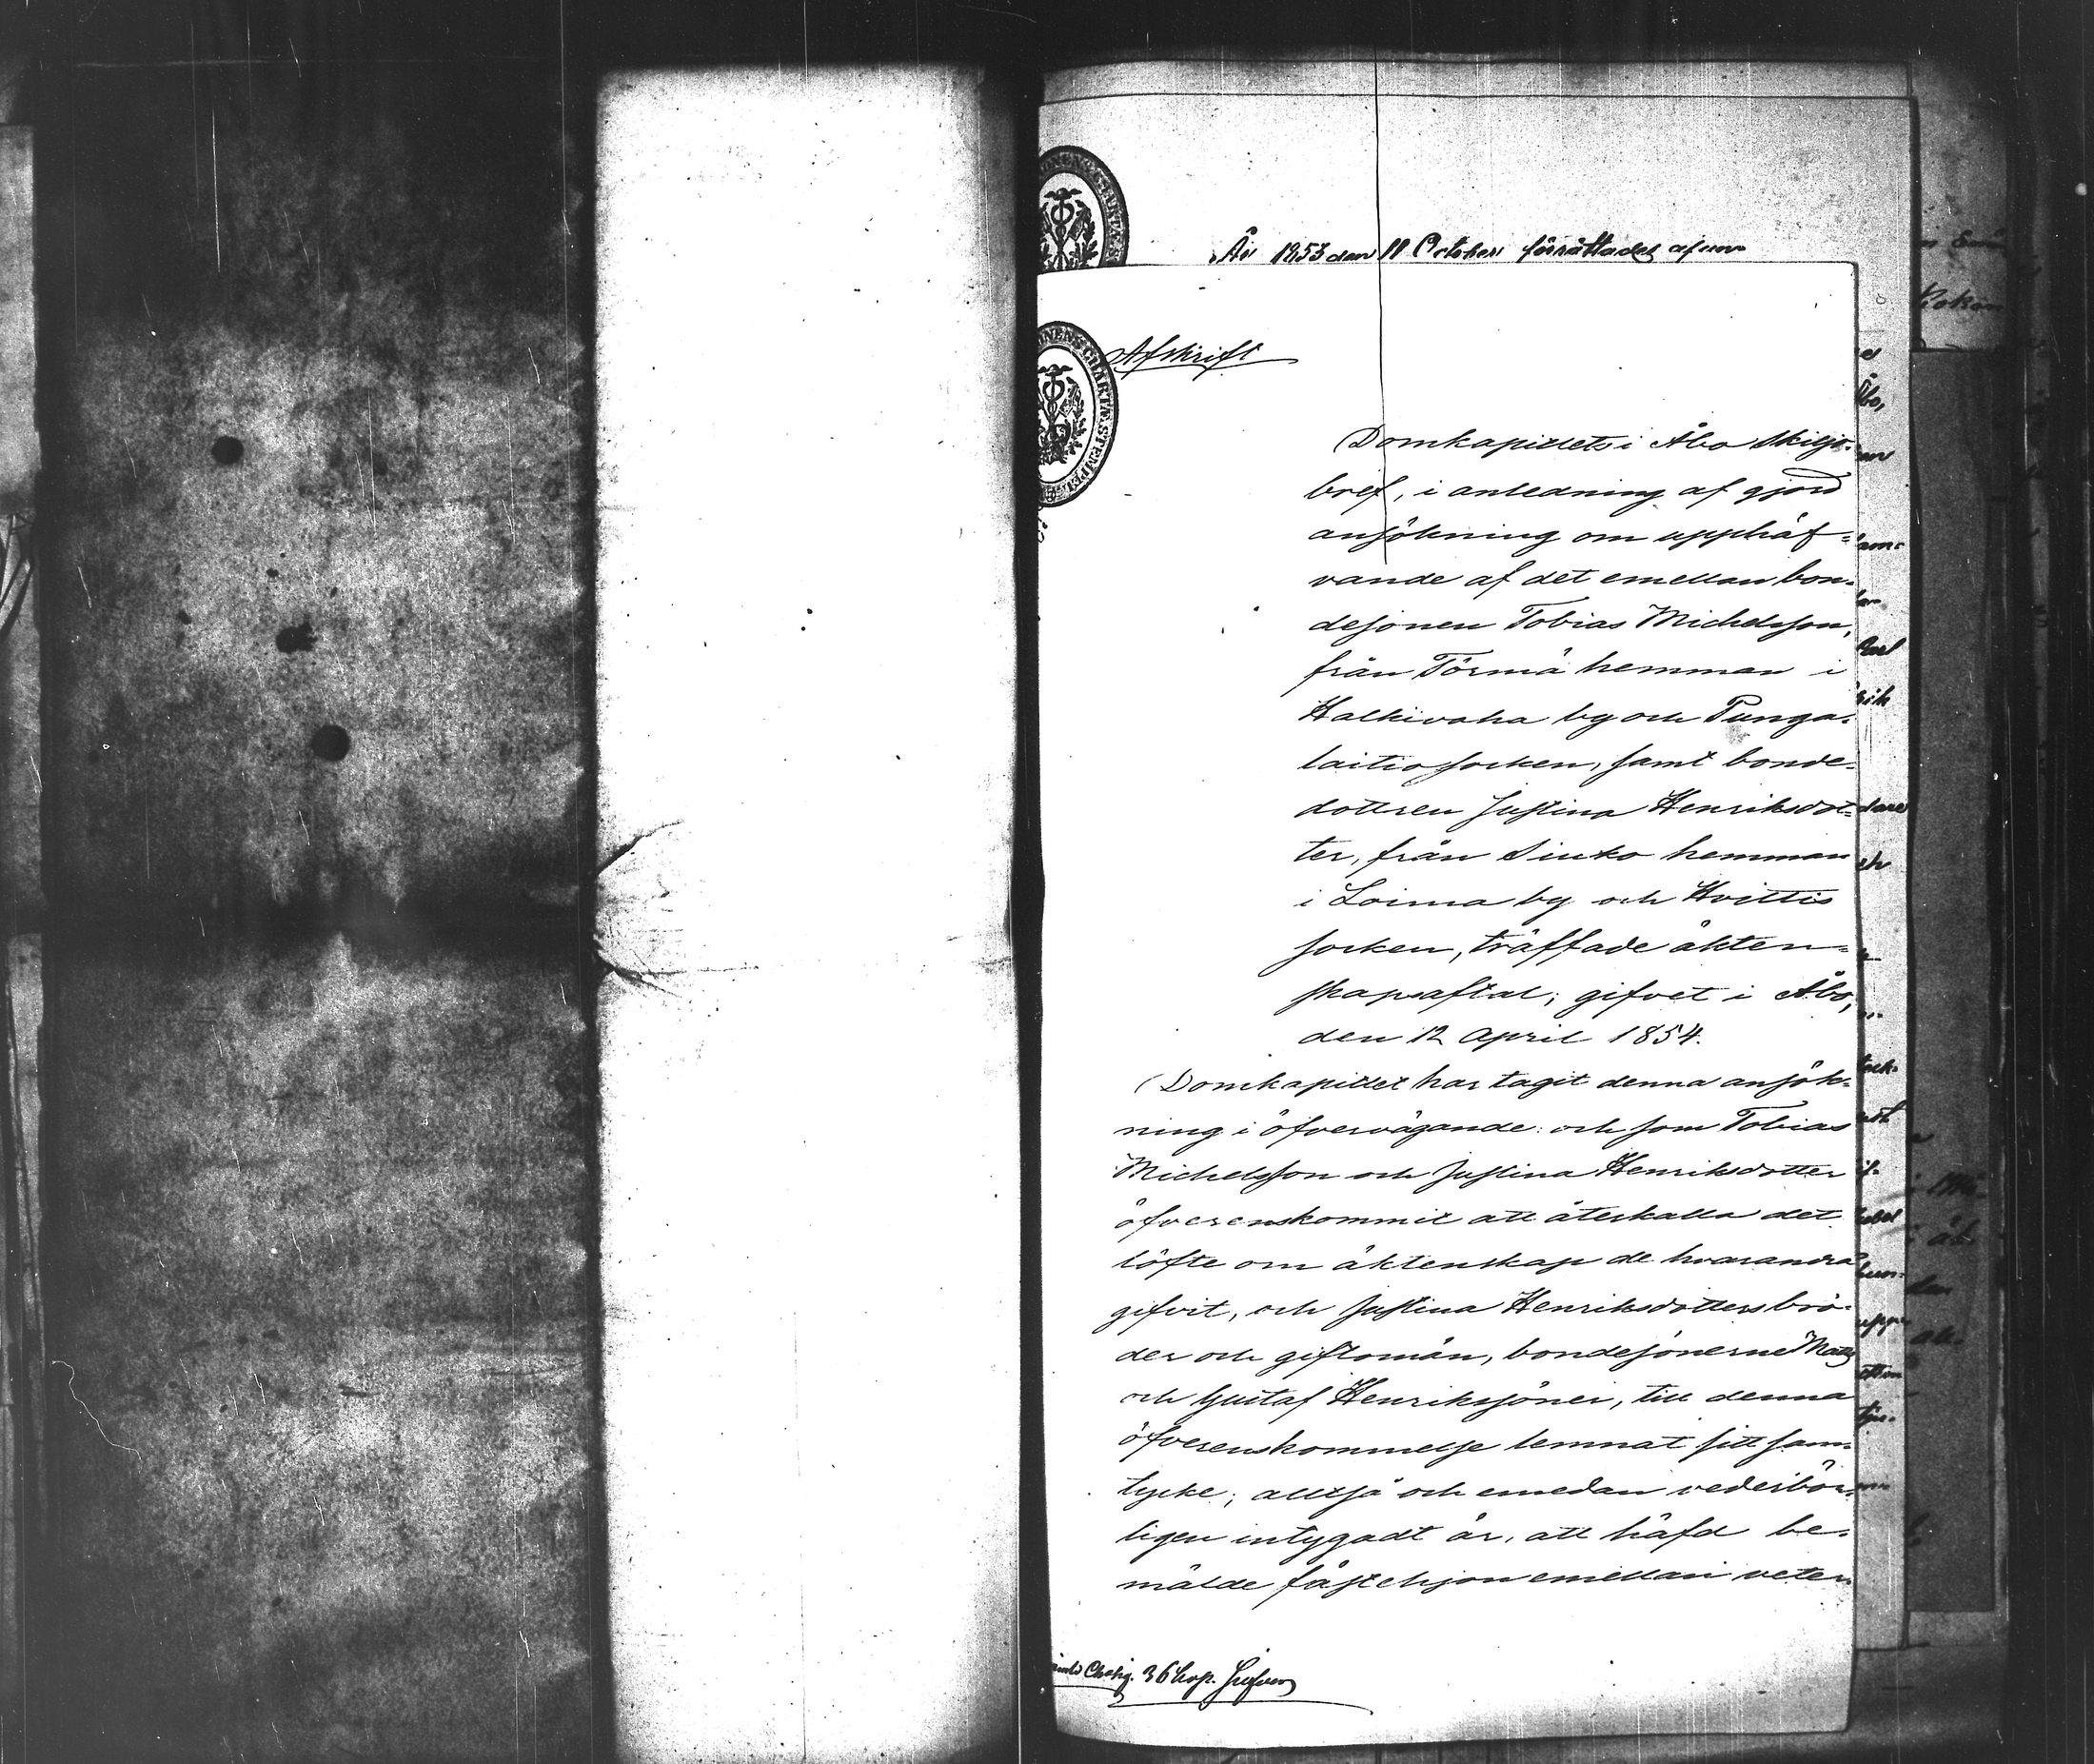 År 1853 den 11 October förrättades af un-
Afskrift
CHARTÆ STEMPEL
Domkapitlets i Åbo skiljo-
bref, i anledning af gjord
ansökning om upphäf-
vande af det emellan bon-
desonen Tobias Michelsson,
från Törmä hemman i
Halkivaha by och Punga-
laitio socken, samt bonde-
dottren Justina Henriksdot-
ter, från hemman
i Loima by och Hvittis
socken, träffade äkten-
skapsaftal; gifvet i Åbo,
den 12 April 1854.
Domkapitlet har tagit denna ansök-
ning i öfvervägande: och som Tobias
Michelsson och Justina Henriksdotter
öfverenskommit att återkalla det
löfte om äktenskap de hvarandra
gifvit, och Justina Henriksdotters brö-
der och giftomän, bondesönerne Mats
och Gustaf Henrikssöner, till denna
öfverenskommelse lemnat sitt sam-
tycke; alltså och emedan vederbör-
ligen intygadt är, att häfd be-
mälde fästehjon emellan veter-
36 kop. Silfver